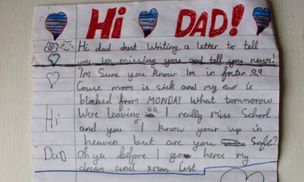 Hi DAD!
Hi dad Just Writing a letter to tell
you im missing you and tell you news!
I'm Sure you know Im in foster
Cause mom is sick and my ear is
blocked from MONDAY What tommorow
Hi Were leaving I really miss School
and you I know your up in
heaven but are you Safe?
Dad Oh ya before I go heres my
dream and xmas list